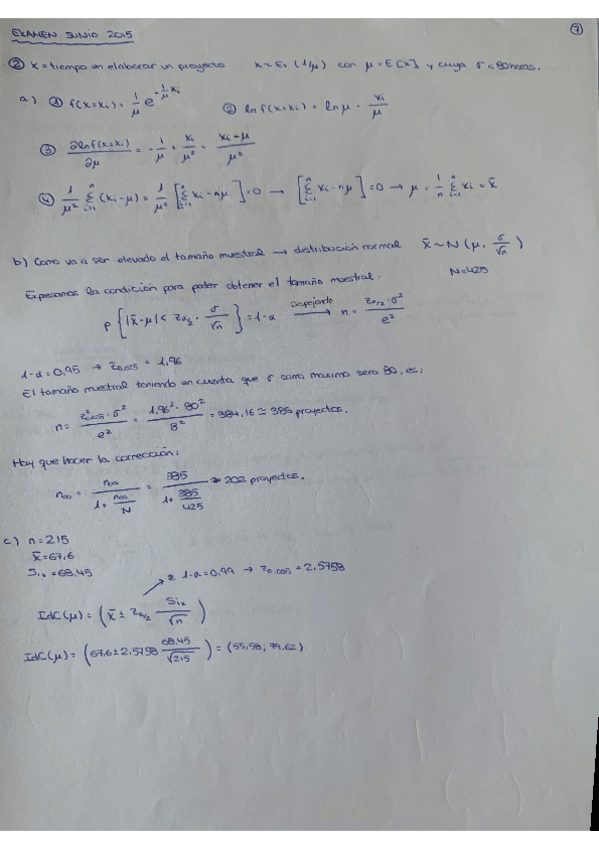 EXAMEN JUNIO 2015
7
② X = tiempo en elaborar un proyecto x ~ Ex (1/μ) con μ = E[x] y cuya σ < 80 horas.
a) ① f(x=xi) = 1/μ e^(-1/μ xi) ② ln f(x=xi) = ln μ - xi/μ
③ ∂ln f(x=xi)/∂μ = -1/μ + xi/μ² = (xi-μ)/μ²
④ 1/μ² Σ(i=1, n) (xi-μ) = 1/μ² [Σ(i=1, n) xi - nμ] = 0 → [Σ(i=1, n) xi - nμ] = 0 → μ = 1/n Σ(i=1, n) xi = x̄
b) Como va a ser elevado el tamaño muestral → distribución normal x̄ ~ N (μ, σ/√n)
N=425
Expresamos la condición para poder obtener el tamaño muestral:
P{|x̄-μ| < Zα/2 · σ/√n} = 1-α Despejando → n = Zα/2 · σ²/e²
1-α = 0,95 → Z0,025 = 1,96
El tamaño muestral teniendo en cuenta que σ como maximo sera 80, es:
n = Z²0,025 · σ²/e² = 1,96² · 80²/8² = 384,16 ≃ 385 proyectos.
Hay que hacer la corrección:
n∞ = n∞/(1 + n∞/N) = 385/(1 + 385/425) = 202 proyectos.
c) n = 215
x̄ = 67,6
S1x = 68,45
2 1-α = 0,99 → Z0.005 = 2,5758
IdC(μ) = (x̄ ± Zα/2 S1x/√n)
IdC(μ) = (67,6 ± 2,5758 68,45/√215) = (55,58; 79,62)